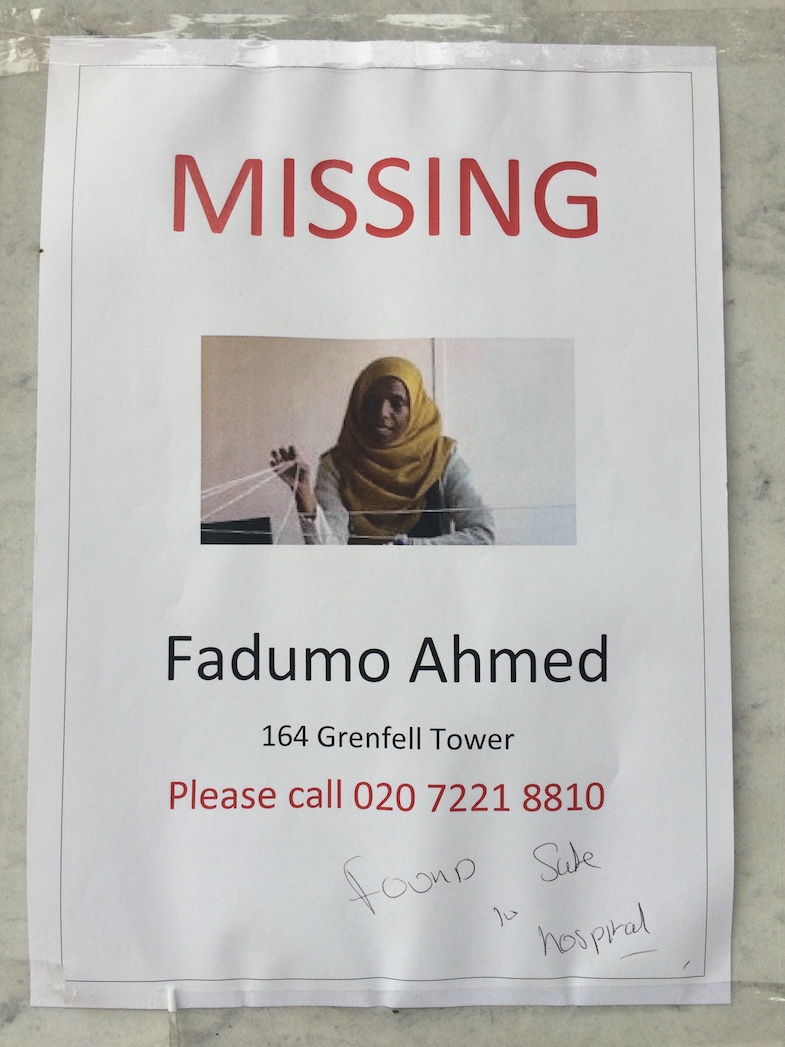 MISSING
Fadumo Ahmed
164 Grenfell Tower
Please call 020 7221 8810
FOUND Safe
in
hospital